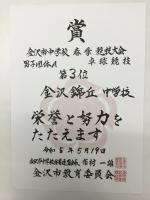 賞
金沢市中学校 春季競技大会
男子団体A 卓球競技
第3位
金沢錦丘中学校
栄誉と努力を
たたえます
令和5年5月19日
金沢市教育委員会